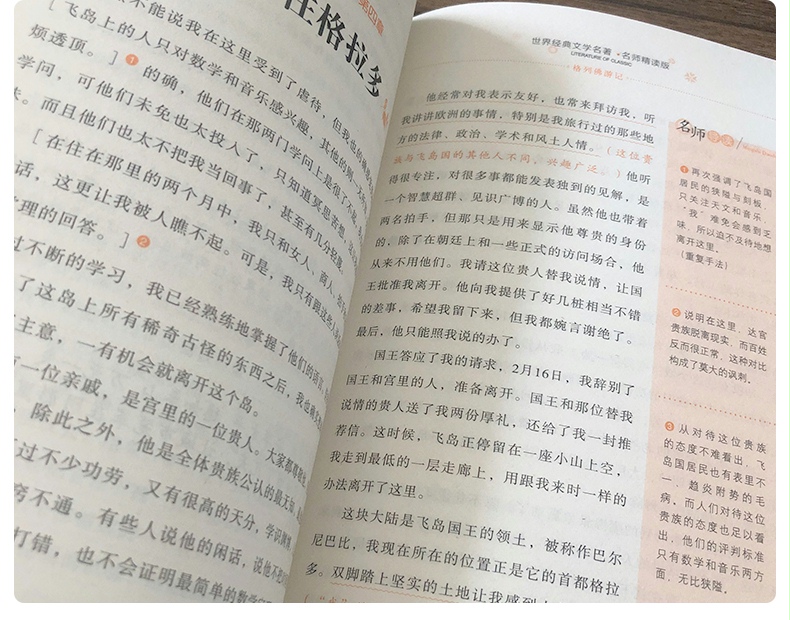 第四章
在格拉多
不能说我在这里受到了虐待，但我也
［飞岛上的人只对数学和音乐感兴趣，其他的则一
烦透顶。］❶的确，他们在那两门学问上是很了
学问，可他们未免也太投入了，只知道冥思苦想，
味。而且他们也太不把我当回事了，甚至有几分轻蔑。
［在住在那里的两个月中，我只和女人、商人、
话，这更让我被人瞧不起。可是，我只有跟这些人
理的回答。］❷
过不断的学习，我已经熟练地掌握了他们的语言，
了这岛上所有稀奇古怪的东西之后，我也
主意，一有机会就离开这个岛。
有一位亲戚，是宫里的一位贵人。大家都
，除此之外，他是全体贵族公认的最无知、
过不少功劳，又有很高的天分，学识
窍不通。有些人说他的闲话，说他不
打错，也不会证明最简单的数学
世界经典文学名著·名师精读版
LITERATURE OF CLASSIC
·格列佛游记·
他经常对我表示友好，也常来拜访我，听
我讲讲欧洲的事情，特别是我旅行过的那些地
方的法律、政治、学术和风土人情。（这位贵
族与飞岛国的其他人不同，兴趣广泛。）他听
得很专注，对很多事都能发表独到的见解，是
一个智慧超群、见识广博的人。虽然他也带着
两名拍手，但那只是用来显示他尊贵的身份
的，除了在朝廷上和一些正式的访问场合，他
从来不用他们。我请这位贵人替我说情，让国
王批准我离开。他向我提供了好几桩相当不错
的差事，希望我留下来，但我都婉言谢绝了。
最后，他只能照我说的办了。
国王答应了我的请求，2月16日，我辞别了
国王和宫里的人，准备离开。国王和那位替我
说情的贵人送了我两份厚礼，还给了我一封推
荐信。这时候，飞岛正停留在一座小山上空，
我走到最低的一层走廊上，用跟我来时一样的
办法离开了这里。
这块大陆是飞岛国王的领土，被称作巴尔
尼巴比，我现在所在的位置正是它的首都格拉
多。双脚踏上坚实的土地让我感到
名师导读
❶再次强调了飞岛国
居民的狭隘与刻板，
只关注天文和音乐，
“我”难免会感到乏
味，所以迫不及待地想
离开这里。
（重复手法）
❷说明在这里，达官
贵族脱离现实，而百姓
反而很正常，这种对比
构成了莫大的讽刺。
❸从对待这位贵族
的态度不难看出，飞
岛国居民也有表里不
一、趋炎附势的毛
病，而人们对待这位
贵族的态度也足以看
出，他们的评判标准
只有数学和音乐两方
面，无比狭隘。